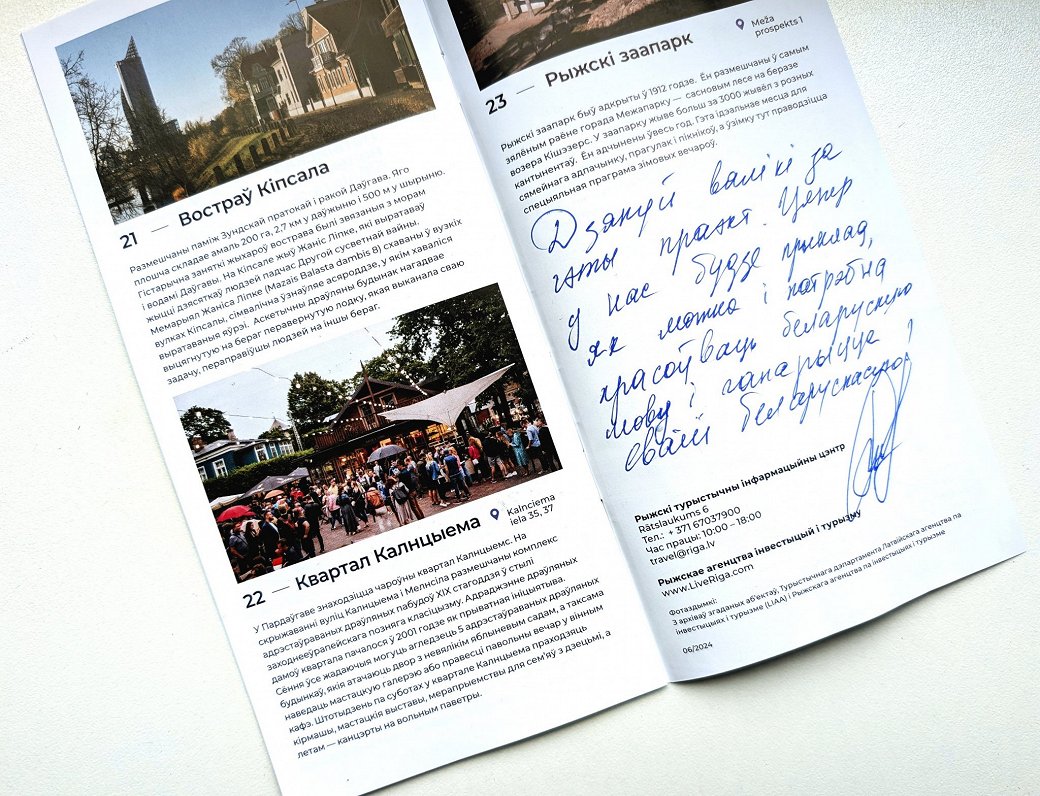 21 — Востраў Кіпсала
Размешчаны паміж Зундскай пратокай і ракой Даўгава. Яго
плошча складае амаль 200 га, 2.7 км у даўжыню і 500 м у шырыню.
Гістарычна заняткі жыхароў вострава былі звязаныя з морам
і водамі Даўгавы. На Кіпсале жыў Жаніс Ліпке, які выратаваў
жыцці дзясяткаў людзей падчас Другой сусветнай вайны.
Мемарыял Жаніса Ліпке (Mazais Balasta dambis 8) схаваны ў вузкіх
вулках Кіпсалы, сімвалічна ўзнаўляе асяроддзе, у якім хаваліся
выратаваныя яўрэі. Аскетычны драўляны будынак нагадвае
выцягнутую на бераг перавернутую лодку, якая выканала сваю
задачу, пераправіўшы людзей на іншы бераг.
22 — Квартал Калнцыема
Kalnciema
iela 35, 37
У Пардаўгаве знаходзіцца чароўны квартал Калнцыемс. На
скрыжаванні вуліц Калнцыема і Мелнсіла размешчаны комплекс
адрэстаўраваных драўляных пабудоў XIX стагоддзя ў стылі
заходнееўрапейскага позняга класіцызму. Адраджэнне драўляных
дамоў квартала пачалося ў 2001 годзе як прыватная ініцыятыва.
Сёння ўсе жадаючыя могуць агледзець 5 адрэстаўраваных драўляных
будынкаў, якія атачаюць двор з невялікім яблыневым садам, а таксама
наведаць мастацкую галерэю або правесці павольны вечар у вінным
кафэ. Штотыдзень па суботах у квартале Калнцыема праходзяць
кірмашы, мастацкія выставы, мерапрыемствы для сем'яў з дзецьмі, а
летам — канцэрты на вольным паветры.
23 — Рыжскі заапарк
Meža
prospekts 1
Рыжскі заапарк быў адкрыты ў 1912 годзе. Ён размешчаны ў самым
зялёным раёне горада Межапарку — сасновым лесе на беразе
возера Кішэзерс. У заапарку жыве больш за 3000 жывёл з розных
кантынентаў. Ён адчынены ўвесь год. Гэта ідэальнае месца для
сямейнага адпачынку, прагулак і пікнікоў, а ўзімку тут праводзіцца
спецыяльная праграма зімовых вечароў.
Дзякуй вялікі за
гэты праект. Цяпер
у нас будзе прыклад,
як можна і патрэбна
красоўваць беларускую
мову і ганарыцца
сваёй беларускасцю!
Рыжскі турыстычны інфармацыйны цэнтр
Rātslaukums 6
Тел.: + 371 67037900
Час працы: 10:00 – 18:00
travel@riga.lv
Рыжскае агенцтва інвестыцый і турызму
www.LiveRiga.com
Фотаздымкі:
З архіваў згаданых аб'ектаў, Турыстычнага дэпартамента Латвійскага агенцтва па
інвестыцыях і турызме (LIAA) і Рыжскага агенцтва па інвестыцыях і турызме
06/2024